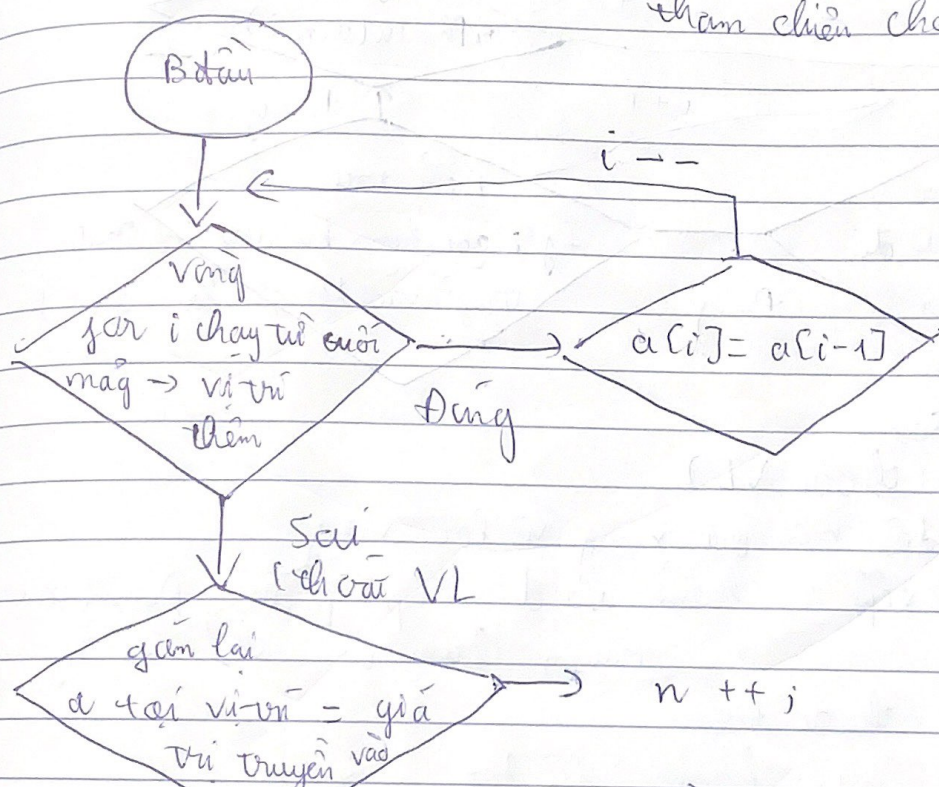 tham chiếu
B đầu
i--
Vòng
for i chạy từ cuối
mảg → vị trí
thêm
a[i] = a[i-1]
Đúng
Sai
(thoát VL
gán lại
a tại vị trí = giá
trị truyền vào
n ++ ;